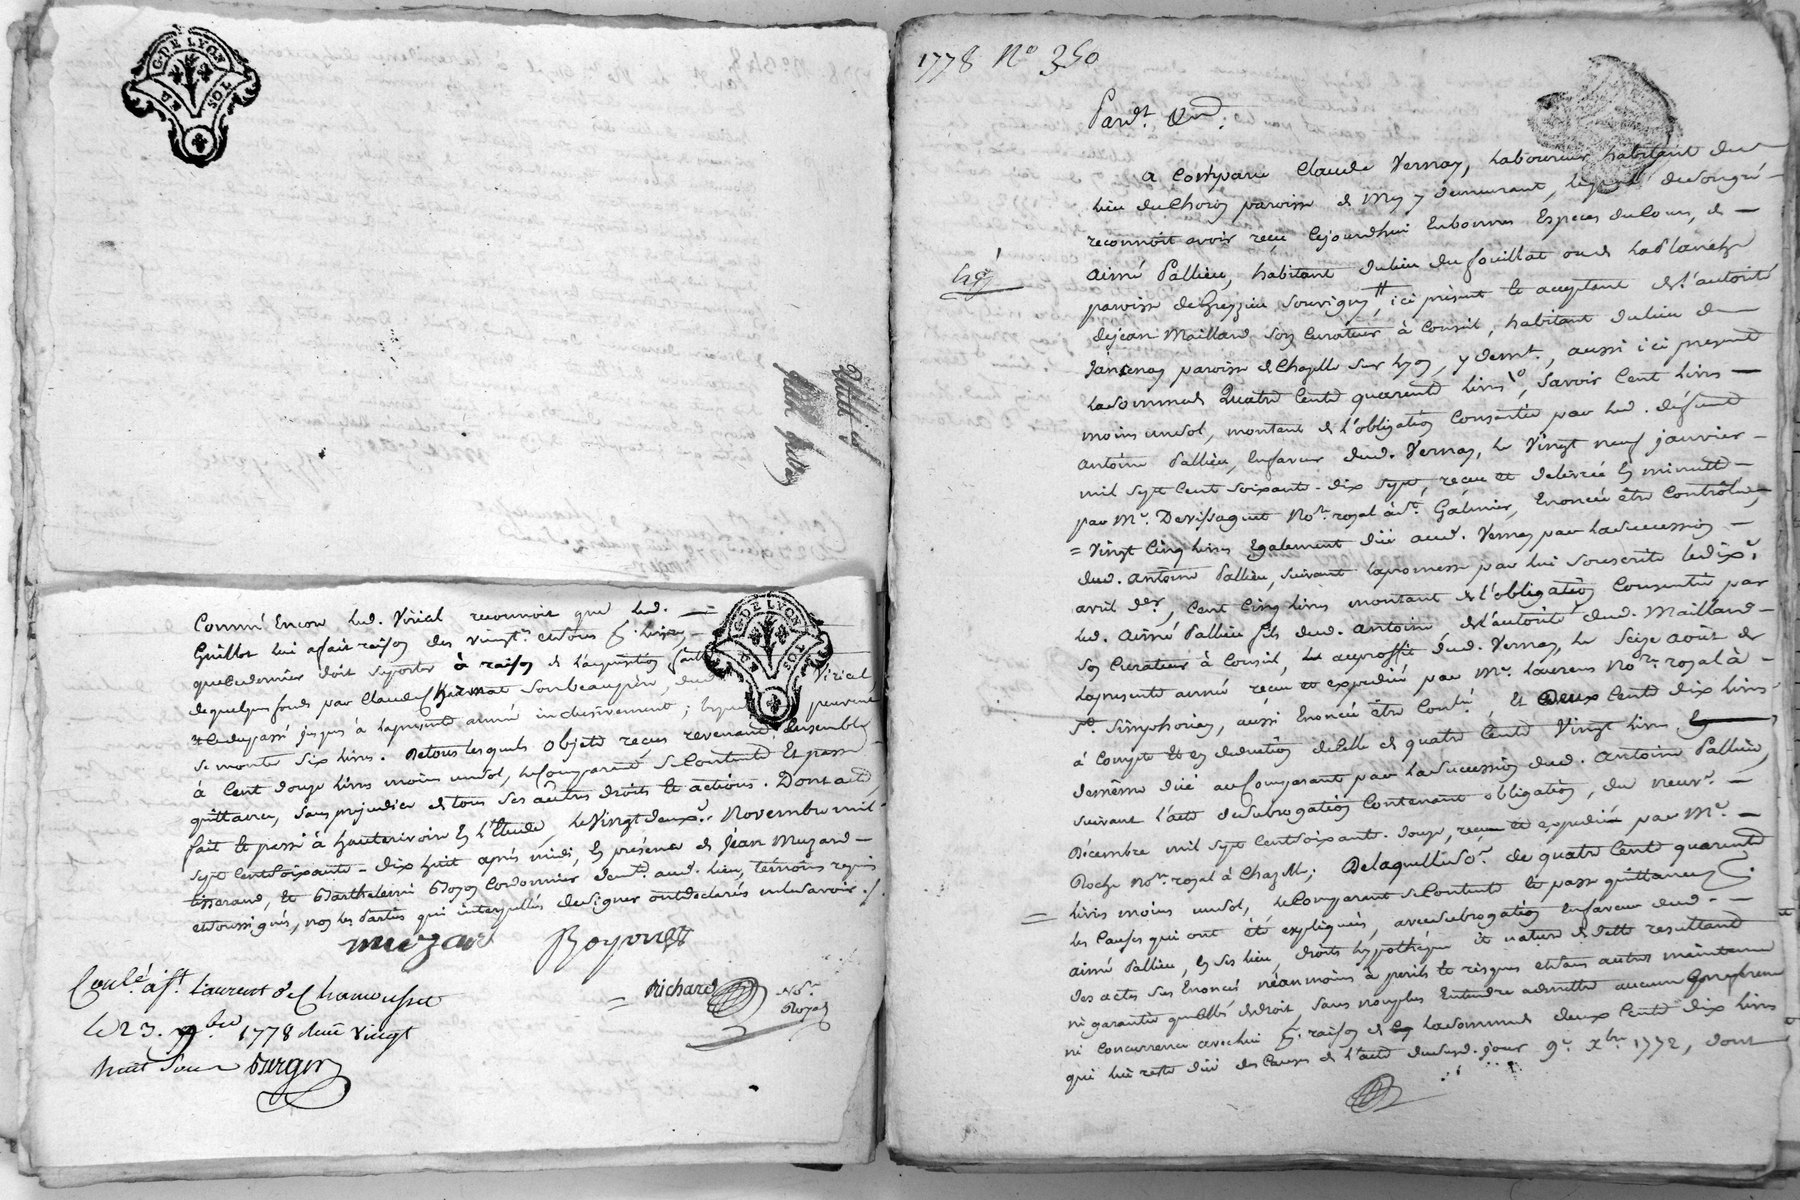 G. DE LYON
DE SOLS
Comme Encore led. Viricel reconnoit que led.
Guillot lui a fait raison des vingt. et sous p. livre
que ce dernier doit suporter à raison de l'acquisition faite
de quelques fonds par Claude son beaupère, dud. Viricel
et ce du passé jusques à la présente année inclusivement; peuvent
se monter six livres. De tous lesquels objets recus revenant Ensemble
à Cent douze livres moins un sol, le Comparant Se Contente Et passe
quittance, sans prejudice de tous ses autres droits et actions. Dont acte,
fait et passé à hauterivoire En l'Etude, le Vingt deux.e Novembre mil-
sept Cent soixante-dix huit après midi, En présence de Jean Muzard
tisserand, Et Barthelemi Boyon Cordonnier dem.t aud. lieu, témoins requis
et soussignés, non les Parties qui interpellées de signer ont déclarés ne le savoir ./.
muzard Boyon
Richard No.re Royal
Con.lé à S.t Laurent de Chamousset
le 23. 9bre 1778 Reçu vingt
huit sous Berger
1778 N° 350
Pard.t
a Comparu Claude Vernay, laboureur habitant du
lieu du Choron paroisse de Mey y demeurant, lequel de son gré
reconnoit avoir reçu Cejourdhui En bonnes Especes du Cours, de
aimé Pallieu, habitant du lieu du fouillat ou de la Planche
paroisse de Grezzieu Souvigny, ici présent et acceptant de l'autorité
de jean Maillard son Curateur à Conseil, habitant du lieu de
Jansenay paroisse de Chazelle sur Lyon, y dem.t, aussi ici present
la somme de Quatre Cents quarente livres, savoir Cent livres
moins un sol, montant de l'obligation Consentie par led. défunt
Antoine Pallieu, En faveur dud. Vernay, le Vingt neuf janvier
mil sept Cent Soixante-dix sept, recue et delivrée En minutte
par M.e Devissaguet No.re royal à S.t Galmier, Enoncée être Contrôlée,
= Vingt Cinq livres Egalement dûe aud. Vernay par la Succession
dud. Antoine Pallieu, suivant la promesse par lui Souscrite le dix.e
avril der., Cent Cinq livres montant de l'obligation Consentie par
led. Aimé Pallieu fils dud. Antoine de l'autorité dud. Maillard
son Curateur à Conseil, au proffit dud. Vernay, le Seize Août de
la présente année recue et expediée par M.e Laurens No.re royal à
S.t Simphorien, aussi Enoncée être Cont.ée, Et Deux Cents dix livres
à Compte et En deduction de Celle de quatre Cents Vingt livres
de même dûe au Comparant par la Succession dud. Antoine Pallieu,
suivant l'acte de Subrogation Contenant obligation, du neuv.e
Décembre mil sept Cent soixante-douze, reçu et expedié par M.e
Roche No.re royal à Chazelle; De laquelle so.e de quatre Cents quarente
livres moins un sol, le Comparant Se Contente et passe quittance
les Causes qui ont été expliquées, avec subrogation En faveur dud.
aimé Pallieu, En ses lieu, droits hypothéque et nature de dette resultant
des actes Sus Enoncés néanmoins à perils et risques et sans autres maintenue
ni garantie que Celle de droit, sans non plus Entendre admettre aucune preference
ni concurrence avec lui p. raison de la somme de deux Cents dix livres
qui lui reste dûe des Causes de l'acte dud. jour 9.e Xbre 1772, dont